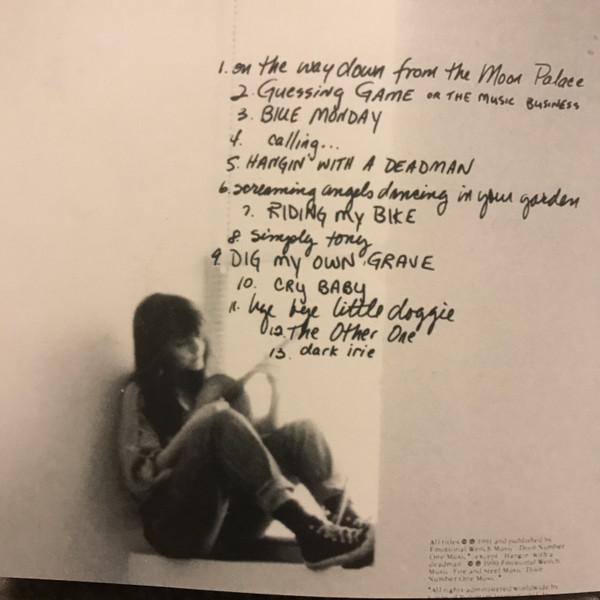 1. on the way down from the Moon Palace
2. GUESSING GAME OR THE MUSIC BUSINESS
3. BLUE MONDAY
4. calling...
5. HANGIN' WITH A DEADMAN
6. screaming angels dancing in your garden
7. RIDING my BIKE
8. simply tony
9. DIG my OWN GRAVE
10. CRY BABY
11. bye bye little doggie
12. The Other One
13. dark irie
All titles © ℗ 1991 and published by
Emotional Wench Music/Door Number
One Music,* except "Hangin' with a
deadman" © ℗ 1990 Emotional Wench
Music/Fire and Steel Music/Door
Number One Music.*
*All rights administered worldwide by